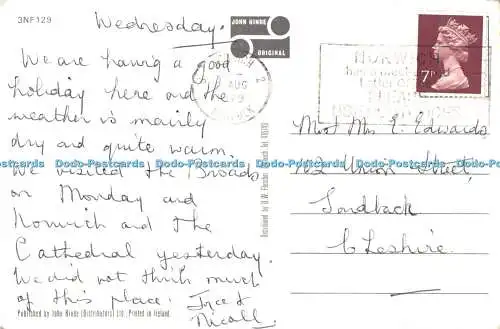 3NF129
Wednesday.
We are having a good
holiday here and the
weather is mainly
dry and quite warm.
We visited the Broads
on Monday and
Norwich and the
Cathedral yesterday.
We did not think much
of this place. Joyce &
Nicoll.
Published by John Hinde (Distributors) Ltd. Printed in Ireland.
JOHN HINDE
ORIGINAL
AUG
NORWICH
7P
Mr E. Edwards
Union Street,
Sandbach
Cheshire.
Dodo-Postcards Dodo-Postcards Dodo-Postcards Dodo-Postcards Dodo-Postcards Dodo-Postcards